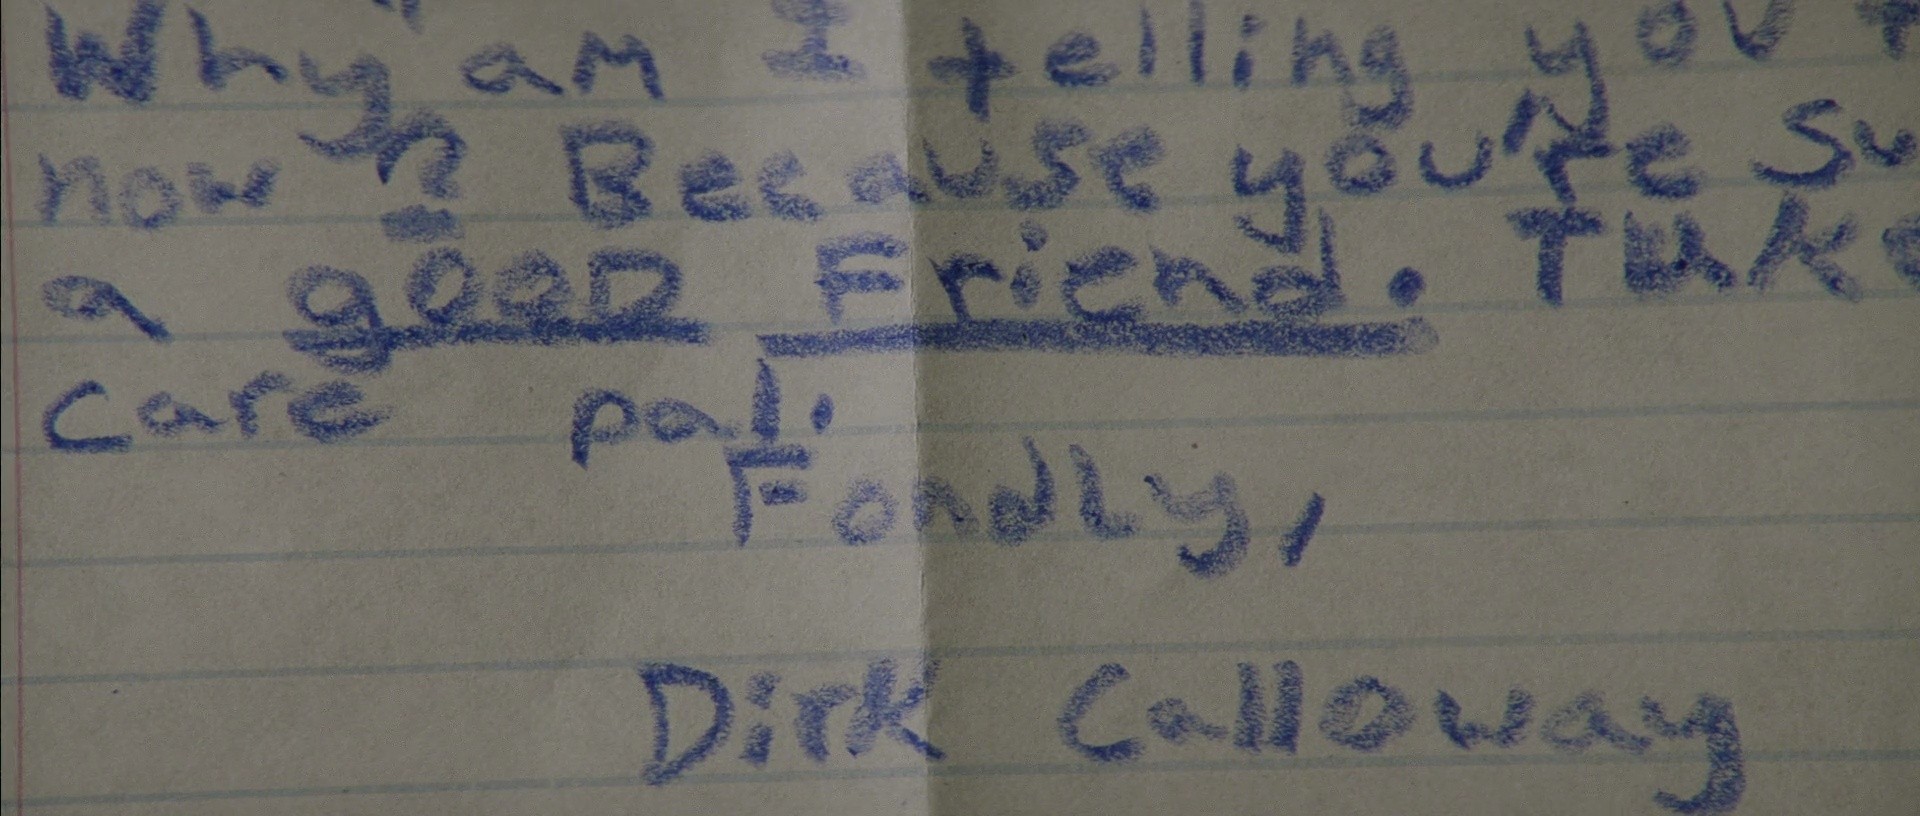 Why am I telling you
now? Because you're
a gooD Friend. Take
care pal.
Fondly,
Dirk Calloway